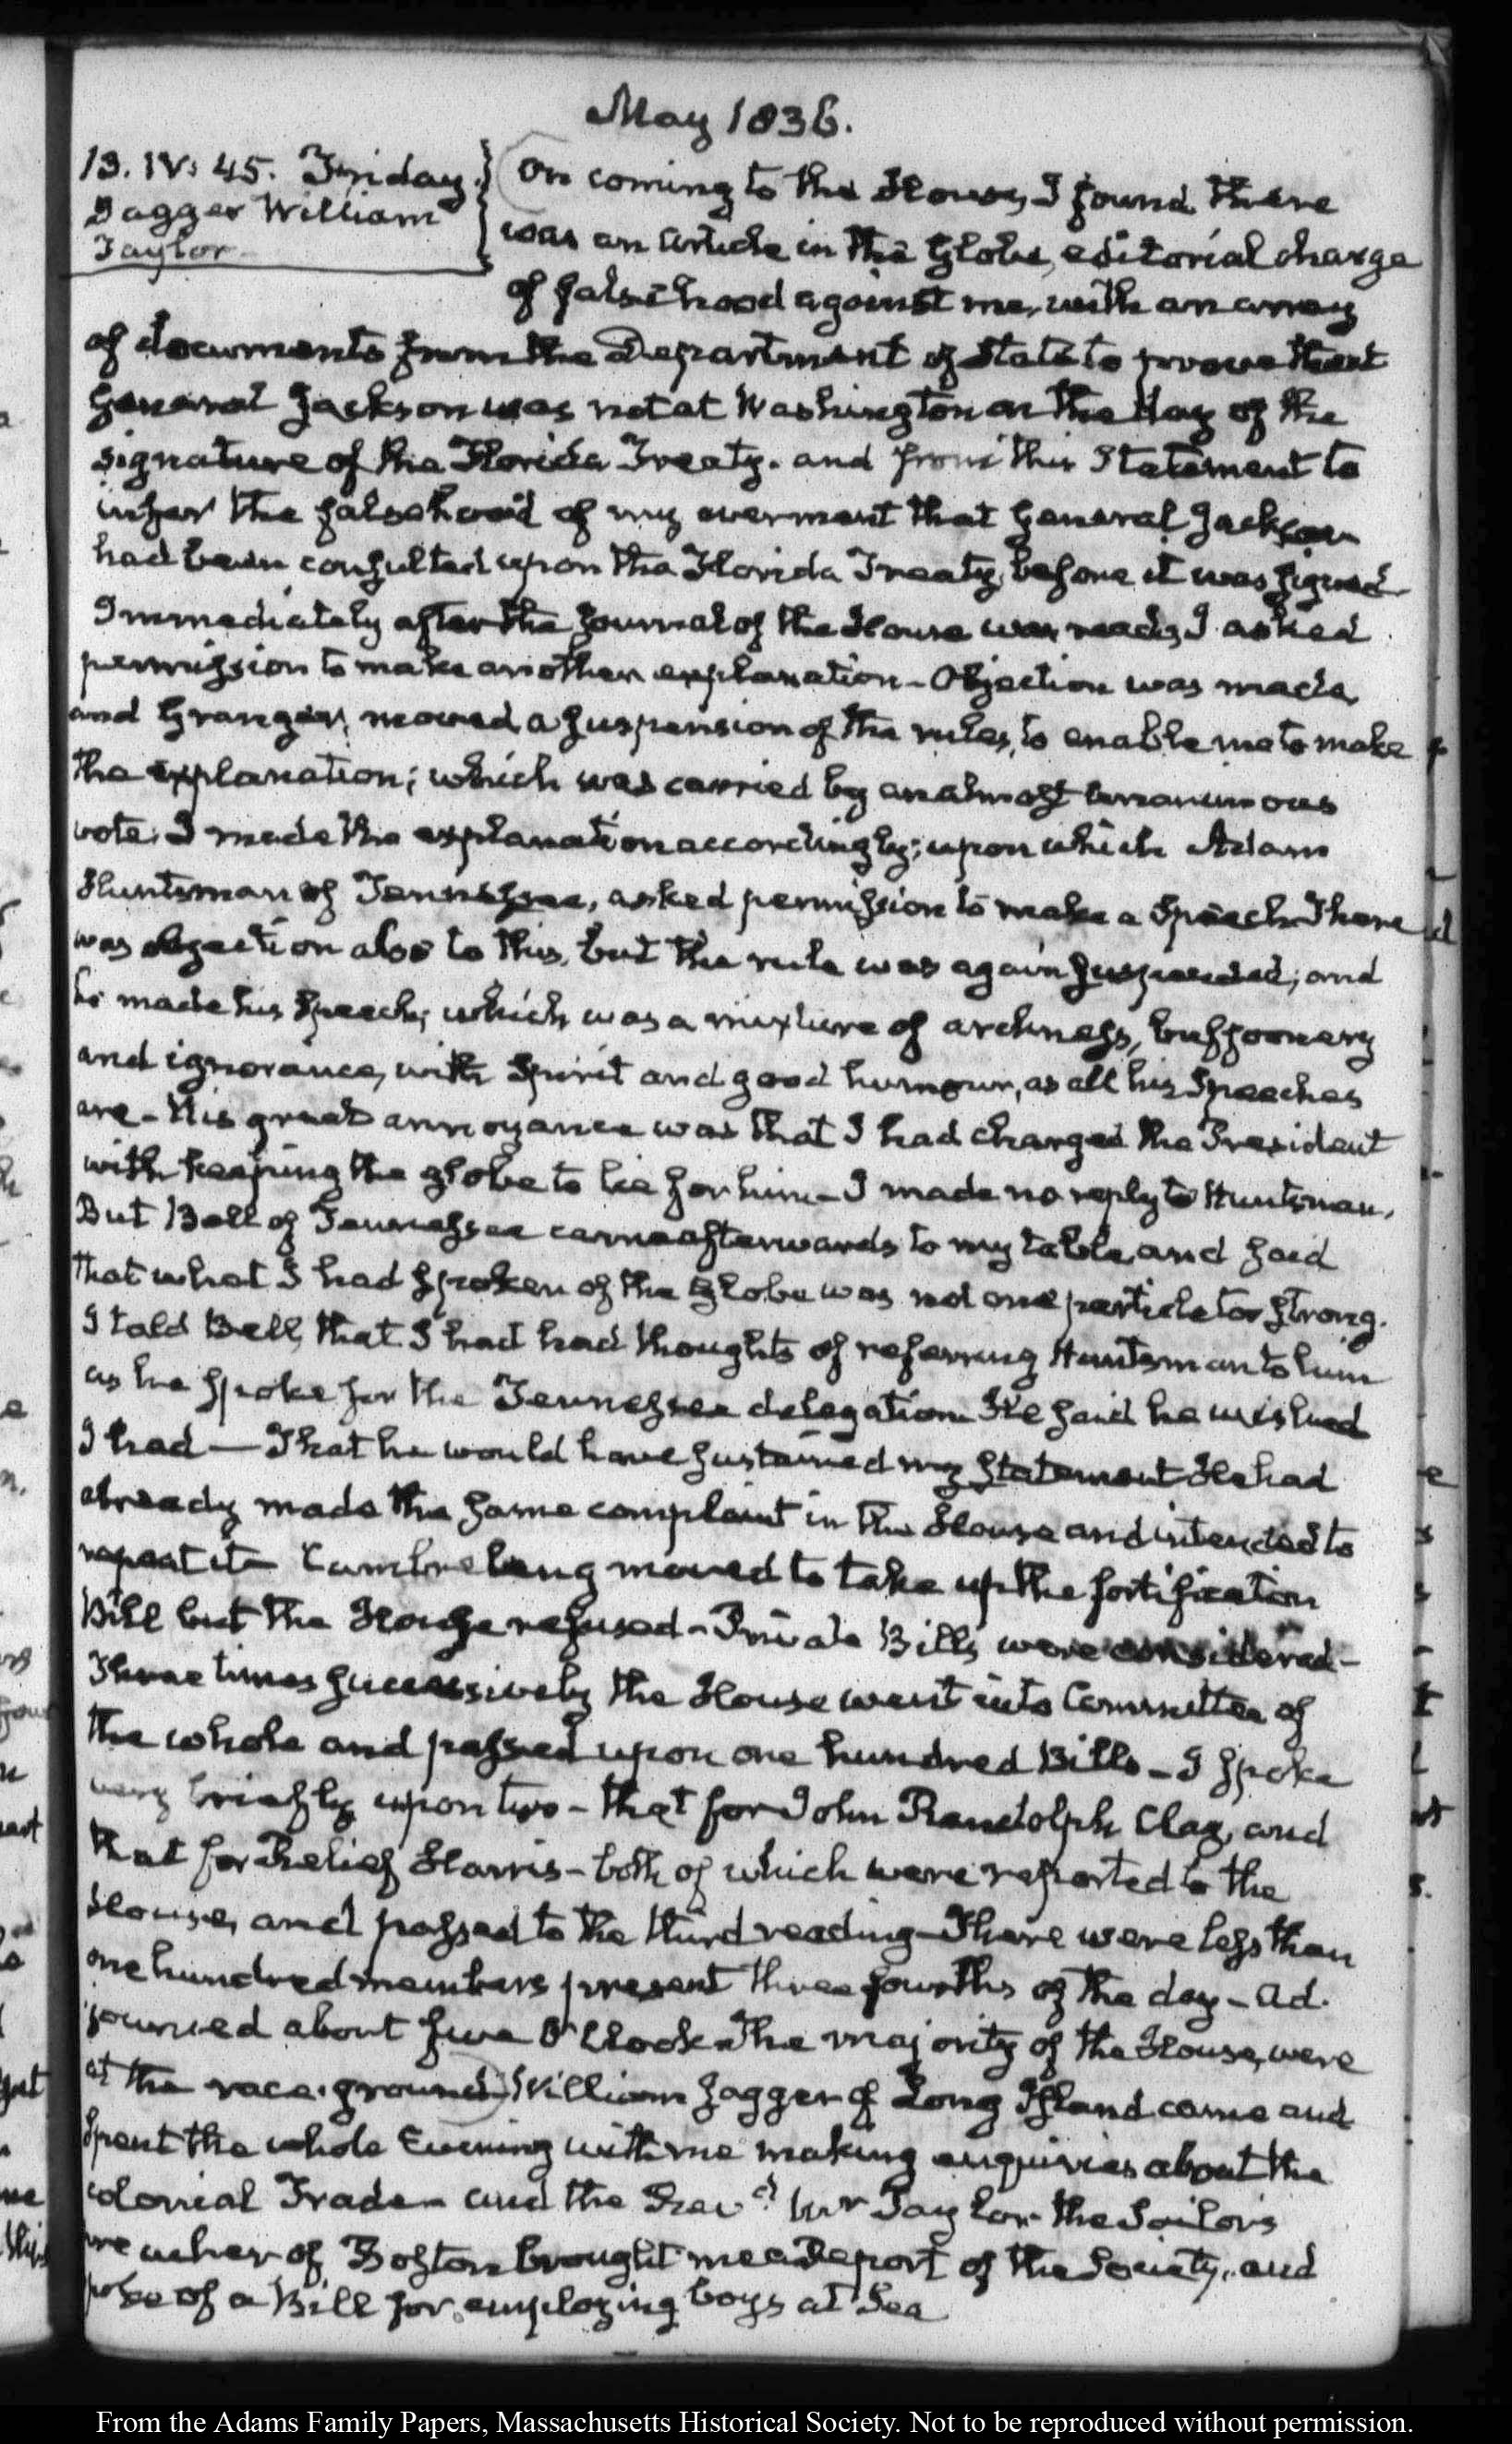 May 1836.
13. IV: 45. Friday.
Jagger William
Taylor
On coming to the House, I found there
was an Article in the Globe, editorial charge
of falsehood against me, with an array
of documents from the Department of State to prove that
General Jackson was not at Washington on the day of the
signature of the Florida Treaty. and from this Statement to
infer the falsehood of my averment that General Jackson
had been consulted upon the Florida Treaty, before it was signed
Immediately after the Journal of the House was read, I asked
permission to make another explanation - Objection was made,
and Granger, moved a suspension of the rules, to enable me to make
the explanation; which was carried by an almost unanimous
vote. I made the explanation accordingly; upon which Adam
Huntsman of Tennessee, asked permission to make a Speech There
was objection also to this, but the rule was again suspended; and
he made his Speech; which was a mixture of archness, buffoonery
and ignorance, with Spirit and good humour, as all his Speeches
are - His great annoyance was that I had charged the President
with keeping the Globe to lie for him - I made no reply to Huntsman.
But Bell of Tennessee came afterwards to my table, and said
that what I had spoken of the Globe was not one particle too strong.
I told Bell, that I had had thoughts of referring Huntsman to him
as he spoke for the Tennessee delegation. He said he wished
I had — That he would have sustained my Statement He had
already made the same complaint in the House and intended to
repeat it - Cambreleng moved to take up the fortification
Bill but the House refused - Private Bills were considered -
Three times successively the House went into Committee of
the whole and passed upon one hundred Bills - I spoke
very briefly upon two - that for John Randolph Clay, and
that for Relief Harris - both of which were reported to the
House, and passed to the third reading - There were less than
one hundred members present three fourths of the day - Ad-
journed about five O'Clock - The majority of the House, were
at the race-ground William Jagger of Long Island came and
Spent the whole Evening with me making enquiries about the
Colonial Trade - and the Revd. Mr Taylor the Sailors
preacher of Boston brought me a Report of the Society, and
spoke of a Bill for employing boys at Sea
From the Adams Family Papers, Massachusetts Historical Society. Not to be reproduced without permission.